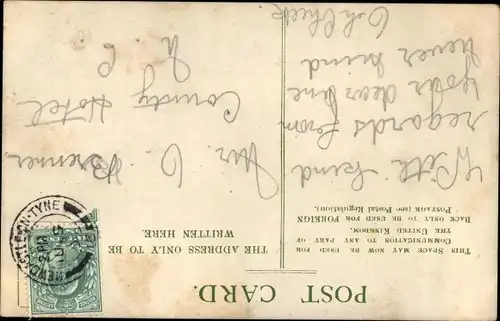 POST CARD.
THIS SPACE MAY NOW BE USED FOR
COMMUNICATION TO ANY PART OF
THE UNITED KINGDOM.
BACK ONLY TO BE USED FOR FOREIGN
POSTAGE (see Postal Regulation).
THE ADDRESS ONLY TO BE
WRITTEN HERE.
With kind
regards from
your dear one
never mind
Mr. O. Brenner
County Hotel
N. C
NEWCASTLE-ON-TYNE